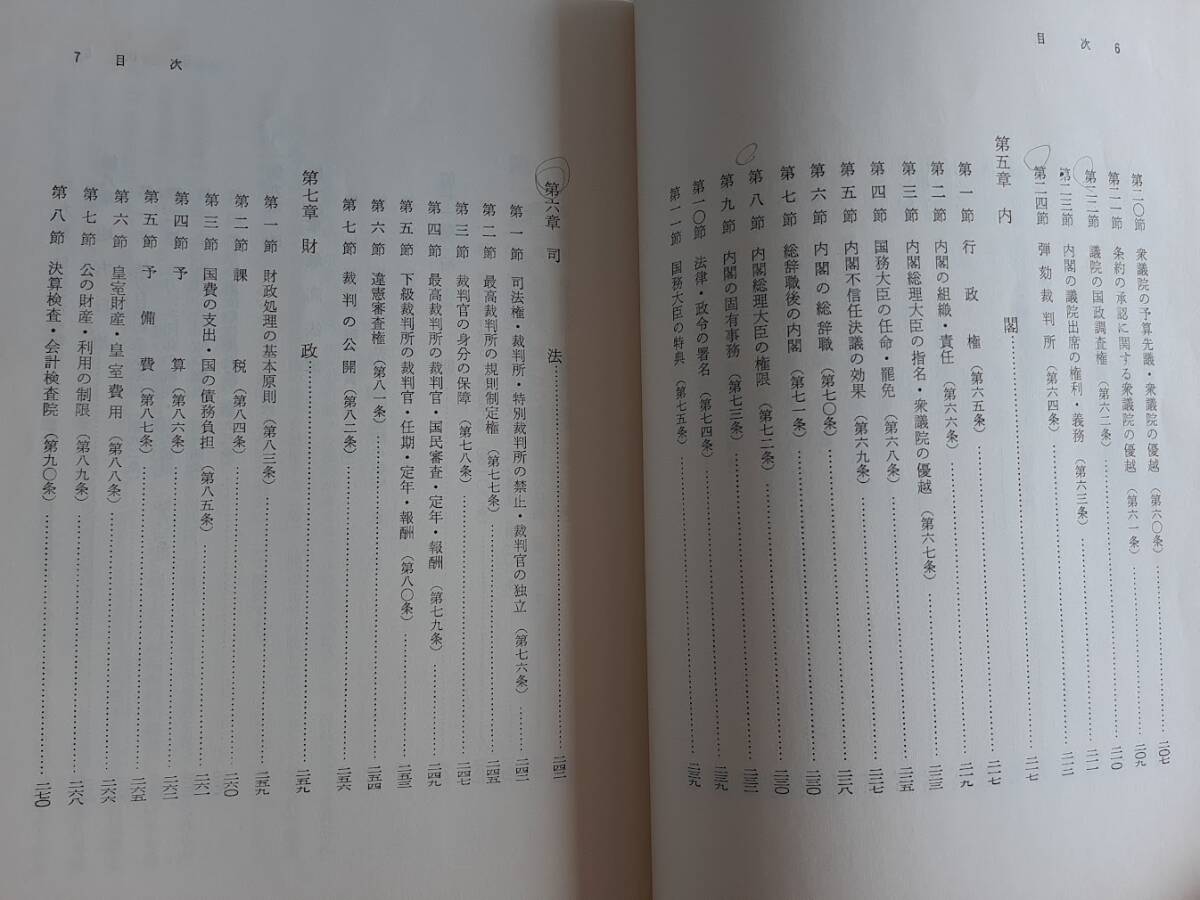 目次 6
第二〇節 衆議院の予算先議・衆議院の優越（第六〇条）……二〇七
第二一節 条約の承認に関する衆議院の優越（第六一条）……二〇九
第二二節 議院の国政調査権（第六二条）……二一〇
第二三節 内閣の議院出席の権利・義務（第六三条）……二一一
第二四節 弾劾裁判所（第六四条）……二一二
第五章 内閣……二一七
第一節 行政権（第六五条）……二一七
第二節 内閣の組織・責任（第六六条）……二一九
第三節 内閣総理大臣の指名・衆議院の優越（第六七条）……二二三
第四節 国務大臣の任命・罷免（第六八条）……二二五
第五節 内閣不信任決議の効果（第六九条）……二二七
第六節 内閣の総辞職（第七〇条）……二二八
第七節 総辞職後の内閣（第七一条）……二三〇
第八節 内閣総理大臣の権限（第七二条）……二三〇
第九節 内閣の固有事務（第七三条）……二三二
第一〇節 法律・政令の署名（第七四条）……二三九
第一一節 国務大臣の特典（第七五条）……二三九
7 目次
第六章 司法……二四二
第一節 司法権・裁判所・特別裁判所の禁止・裁判官の独立（第七六条）……二四二
第二節 最高裁判所の規則制定権（第七七条）……二四五
第三節 裁判官の身分の保障（第七八条）……二四七
第四節 最高裁判所の裁判官・国民審査・定年・報酬（第七九条）……二四九
第五節 下級裁判所の裁判官・任期・定年・報酬（第八〇条）……二五三
第六節 違憲審査権（第八一条）……二五四
第七節 裁判の公開（第八二条）……二五六
第七章 財政……二五九
第一節 財政処理の基本原則（第八三条）……二五九
第二節 課税（第八四条）……二六〇
第三節 国費の支出・国の債務負担（第八五条）……二六一
第四節 予算（第八六条）……二六二
第五節 予備費（第八七条）……二六五
第六節 皇室財産・皇室費用（第八八条）……二六六
第七節 公の財産・利用の制限（第八九条）……二六八
第八節 決算検査・会計検査院（第九〇条）……二七〇